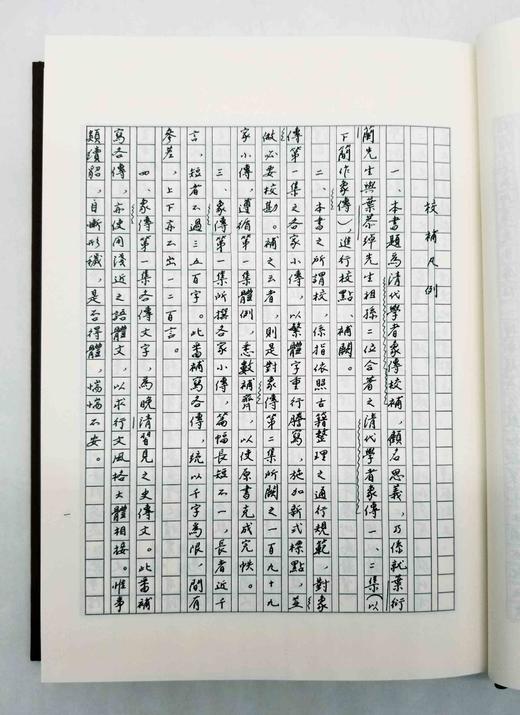 校補凡例
一、本書題為清代學者象傳校補，顧名思義，乃係就葉衍
蘭先生與葉恭綽先生祖孫二位合著之清代學者象傳一、二集（以
下簡作象傳），進行校點、補闕。
二、本書之所謂校，係指依照古籍整理之通行規範，對象
傳第一集之各家小傳，以繁體字重行謄寫，施加新式標點，並
做必要校勘。補之云者，則是對象傳第二集所闕之一百九十九
家小傳，遵循第一集體例，悉數補齊，以使原書克成完帙。
三、象傳第一集所撰各家小傳，篇幅長短不一，長者近千
言，短者不過三五百字。此番補寫各傳，統以千字為限，間有
參差，上下亦不出一二百言。
四、象傳第一集各傳文字，為晚清習見之史傳文。此番補
寫各傳，亦使用淺近之語體文，以求行文風格大體相接。惟事
類續貂，自慚形穢，是否得體，惴惴不安。
一